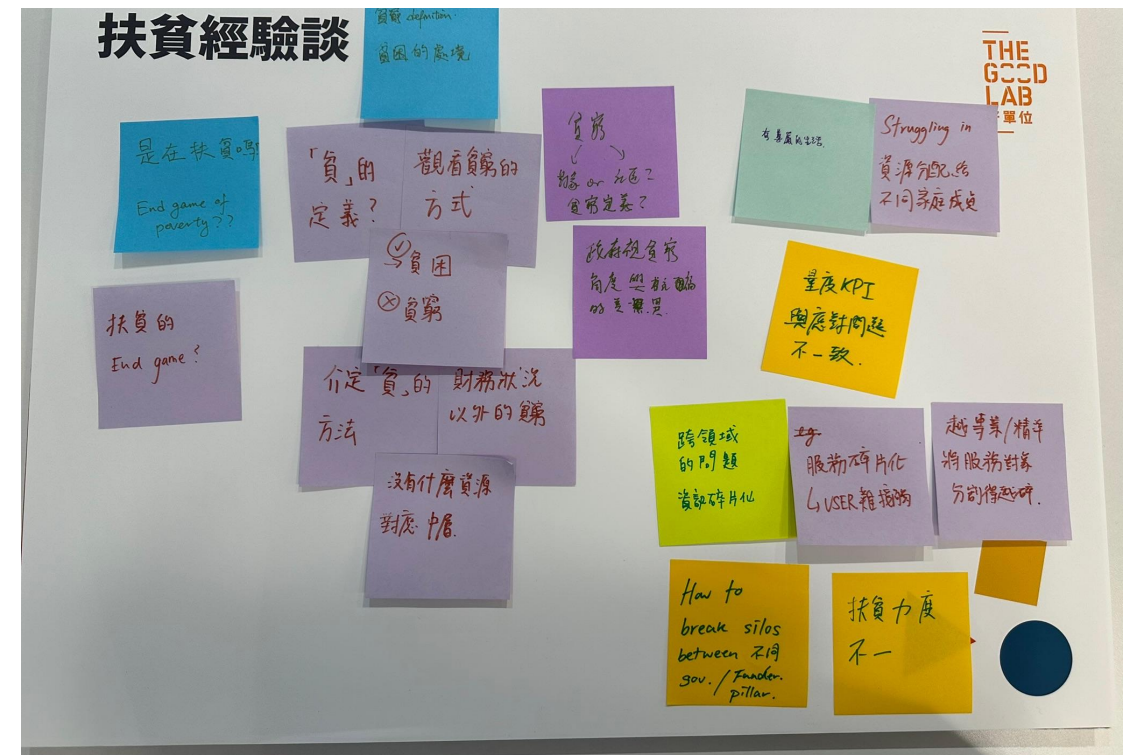 扶貧經驗談
貧窮 definition.
貧困的處境
THE
GOOD
LAB
單位
是在扶貧嗎
End game of
poverty??
「貧」的
定義？
觀看貧窮的
方式
貧窮
對象 or 社區？
貧窮定義？
有尊嚴的生活
Struggling in
資源分配給
不同家庭成員
貧困
貧窮
角度與
的差異
量度KPI
與應對問題
不一致.
扶貧的
End game?
介定「貧」的
方法
財務狀況
以外的貧窮
沒有什麼資源
對應中層
跨領域
的問題
資訊碎片化
服務碎片化
↳USER難接觸
越專業/精準
將服務對象
分割得越碎.
How to
break silos
between 不同
gov./Funder.
pillar.
扶貧力度
不一